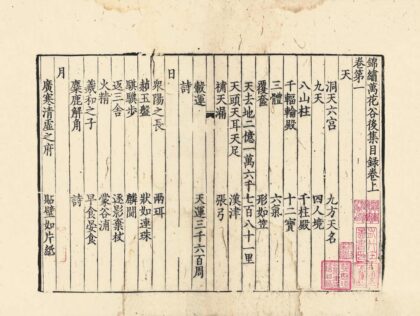 錦繡萬花谷後集目錄卷上
卷第一
天
洞天六宮 九方天名
九天 四人境
八山柱 千柱殿
千輻輪殿 十二寶
三體 六氣
覆蓋 形如笠
天去地二億一萬六千七百八十一里
天頭天耳天足 漢津
補天漏 張弓
載運 天運三千六百周
詩
日
衆陽之長 兩耳
赫玉盤 狀如連珠
騏驥步 麟鬭
返三舍 逐影棄杖
火精 蒙谷浦
羲和之子 早食晏食
麋鹿解角 詩
月
廣寒清虛之府 貼壁如片紙